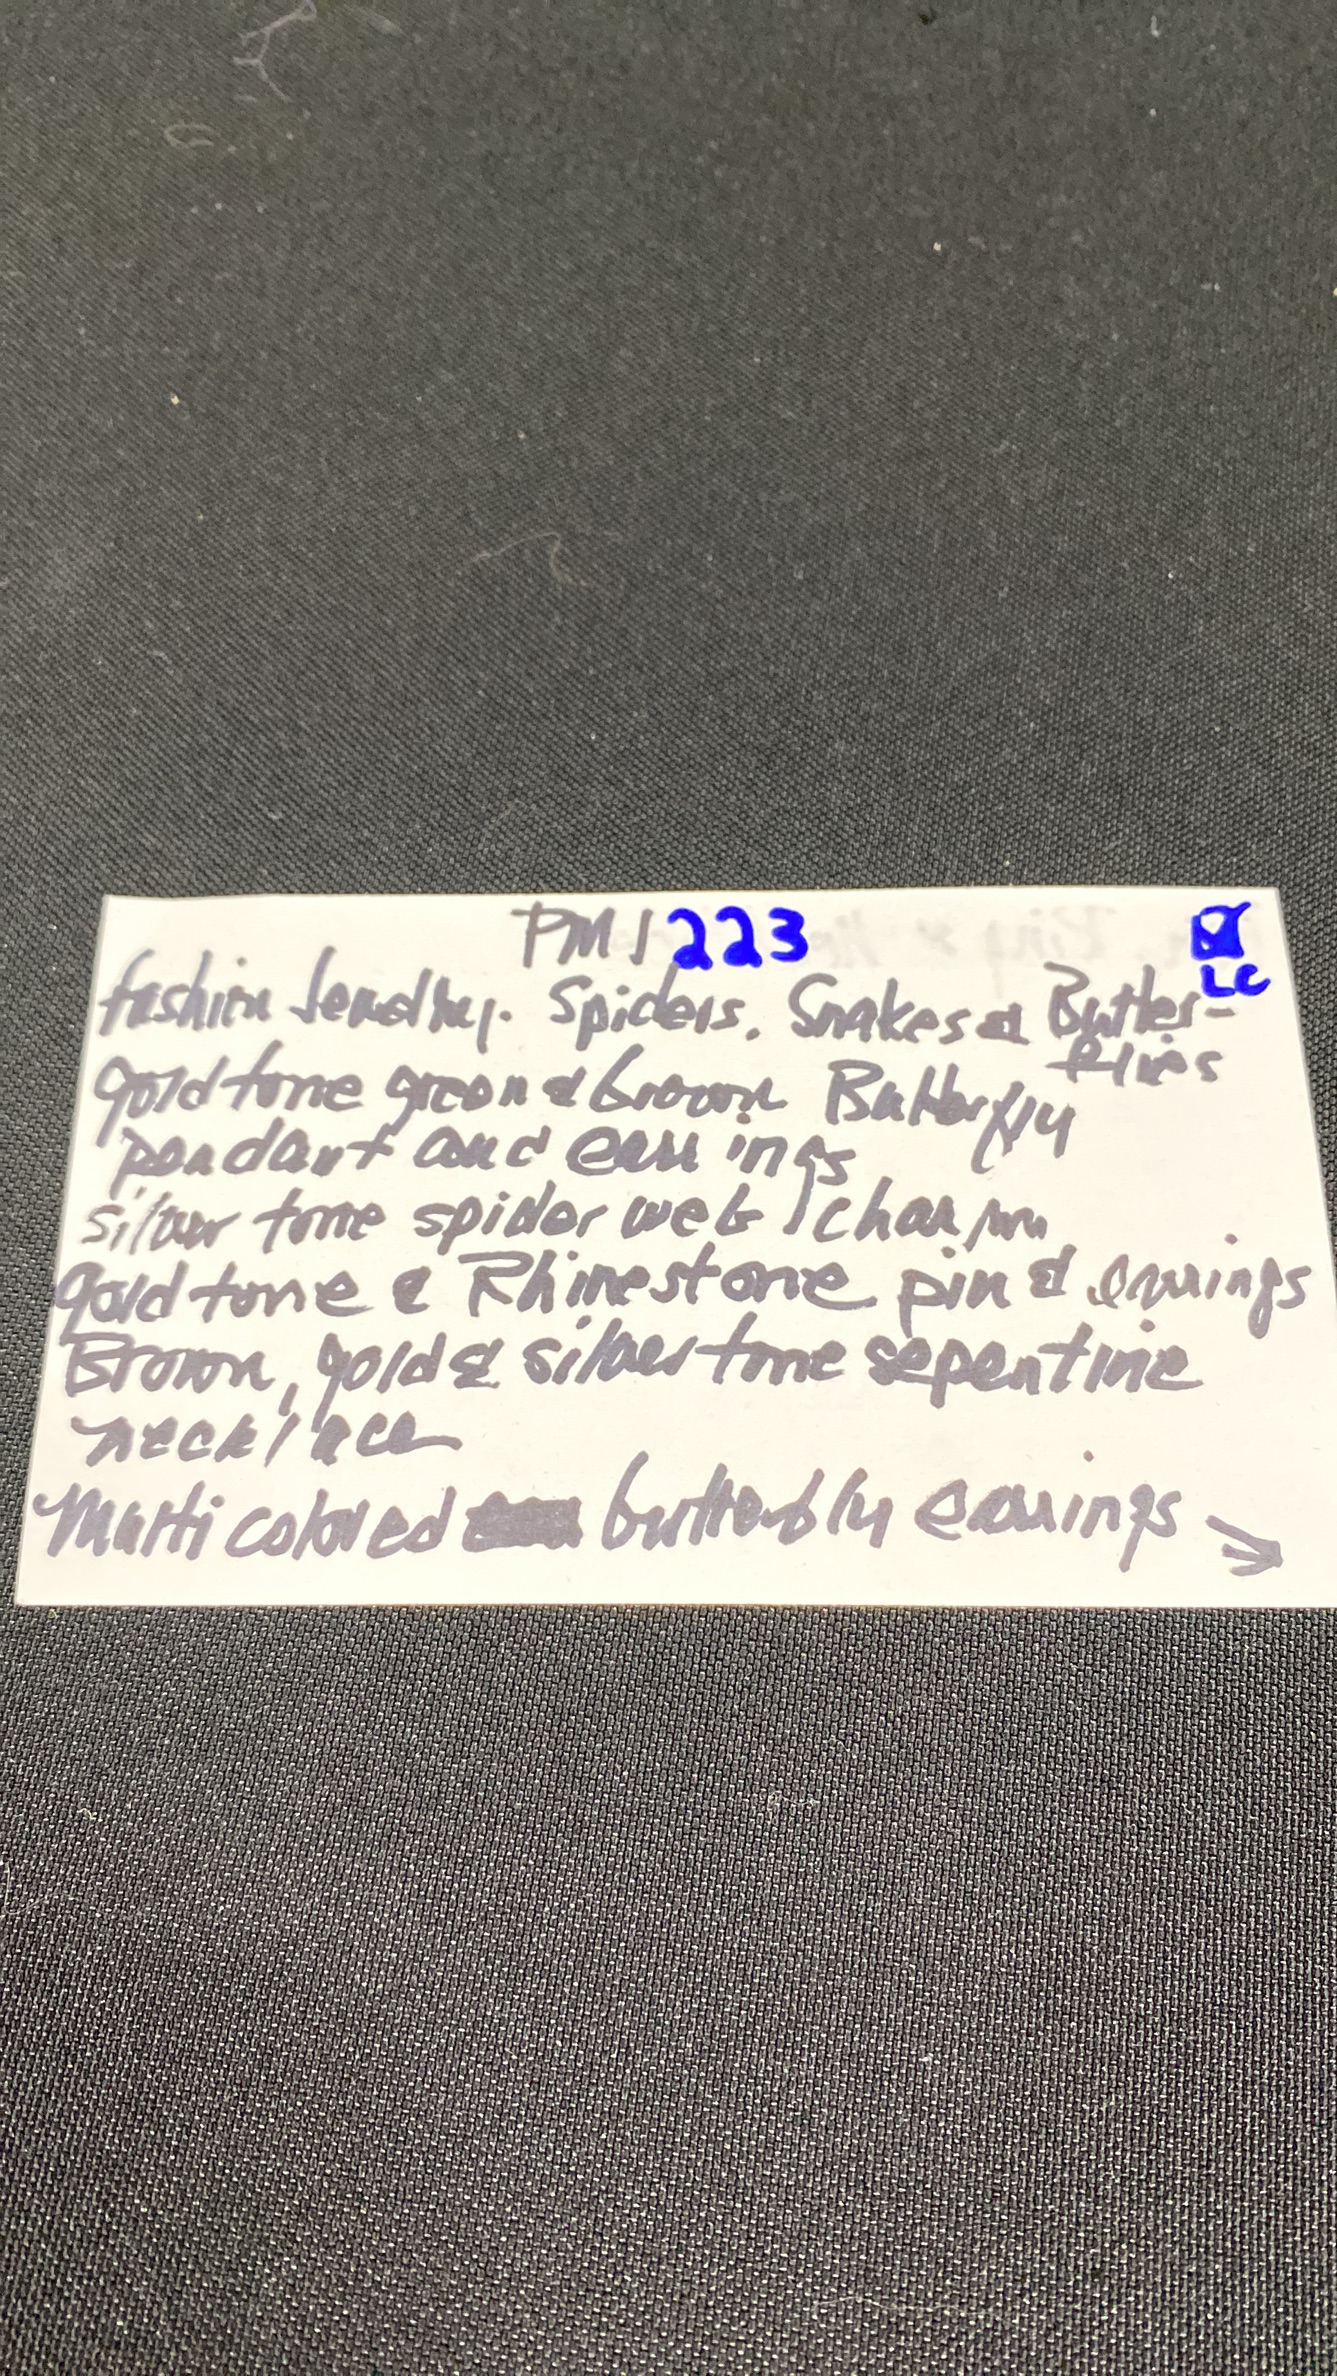 PM1223
LC
fashion Jewelry. Spiders, Snakes & Butter-
flies
gold tone green & brown Butterfly
pendant and earrings
silver tone spider web charm
gold tone & Rhinestone pin & earrings
Brown, gold & silver tone sepentine
necklace
Multi colored butterfly earrings →